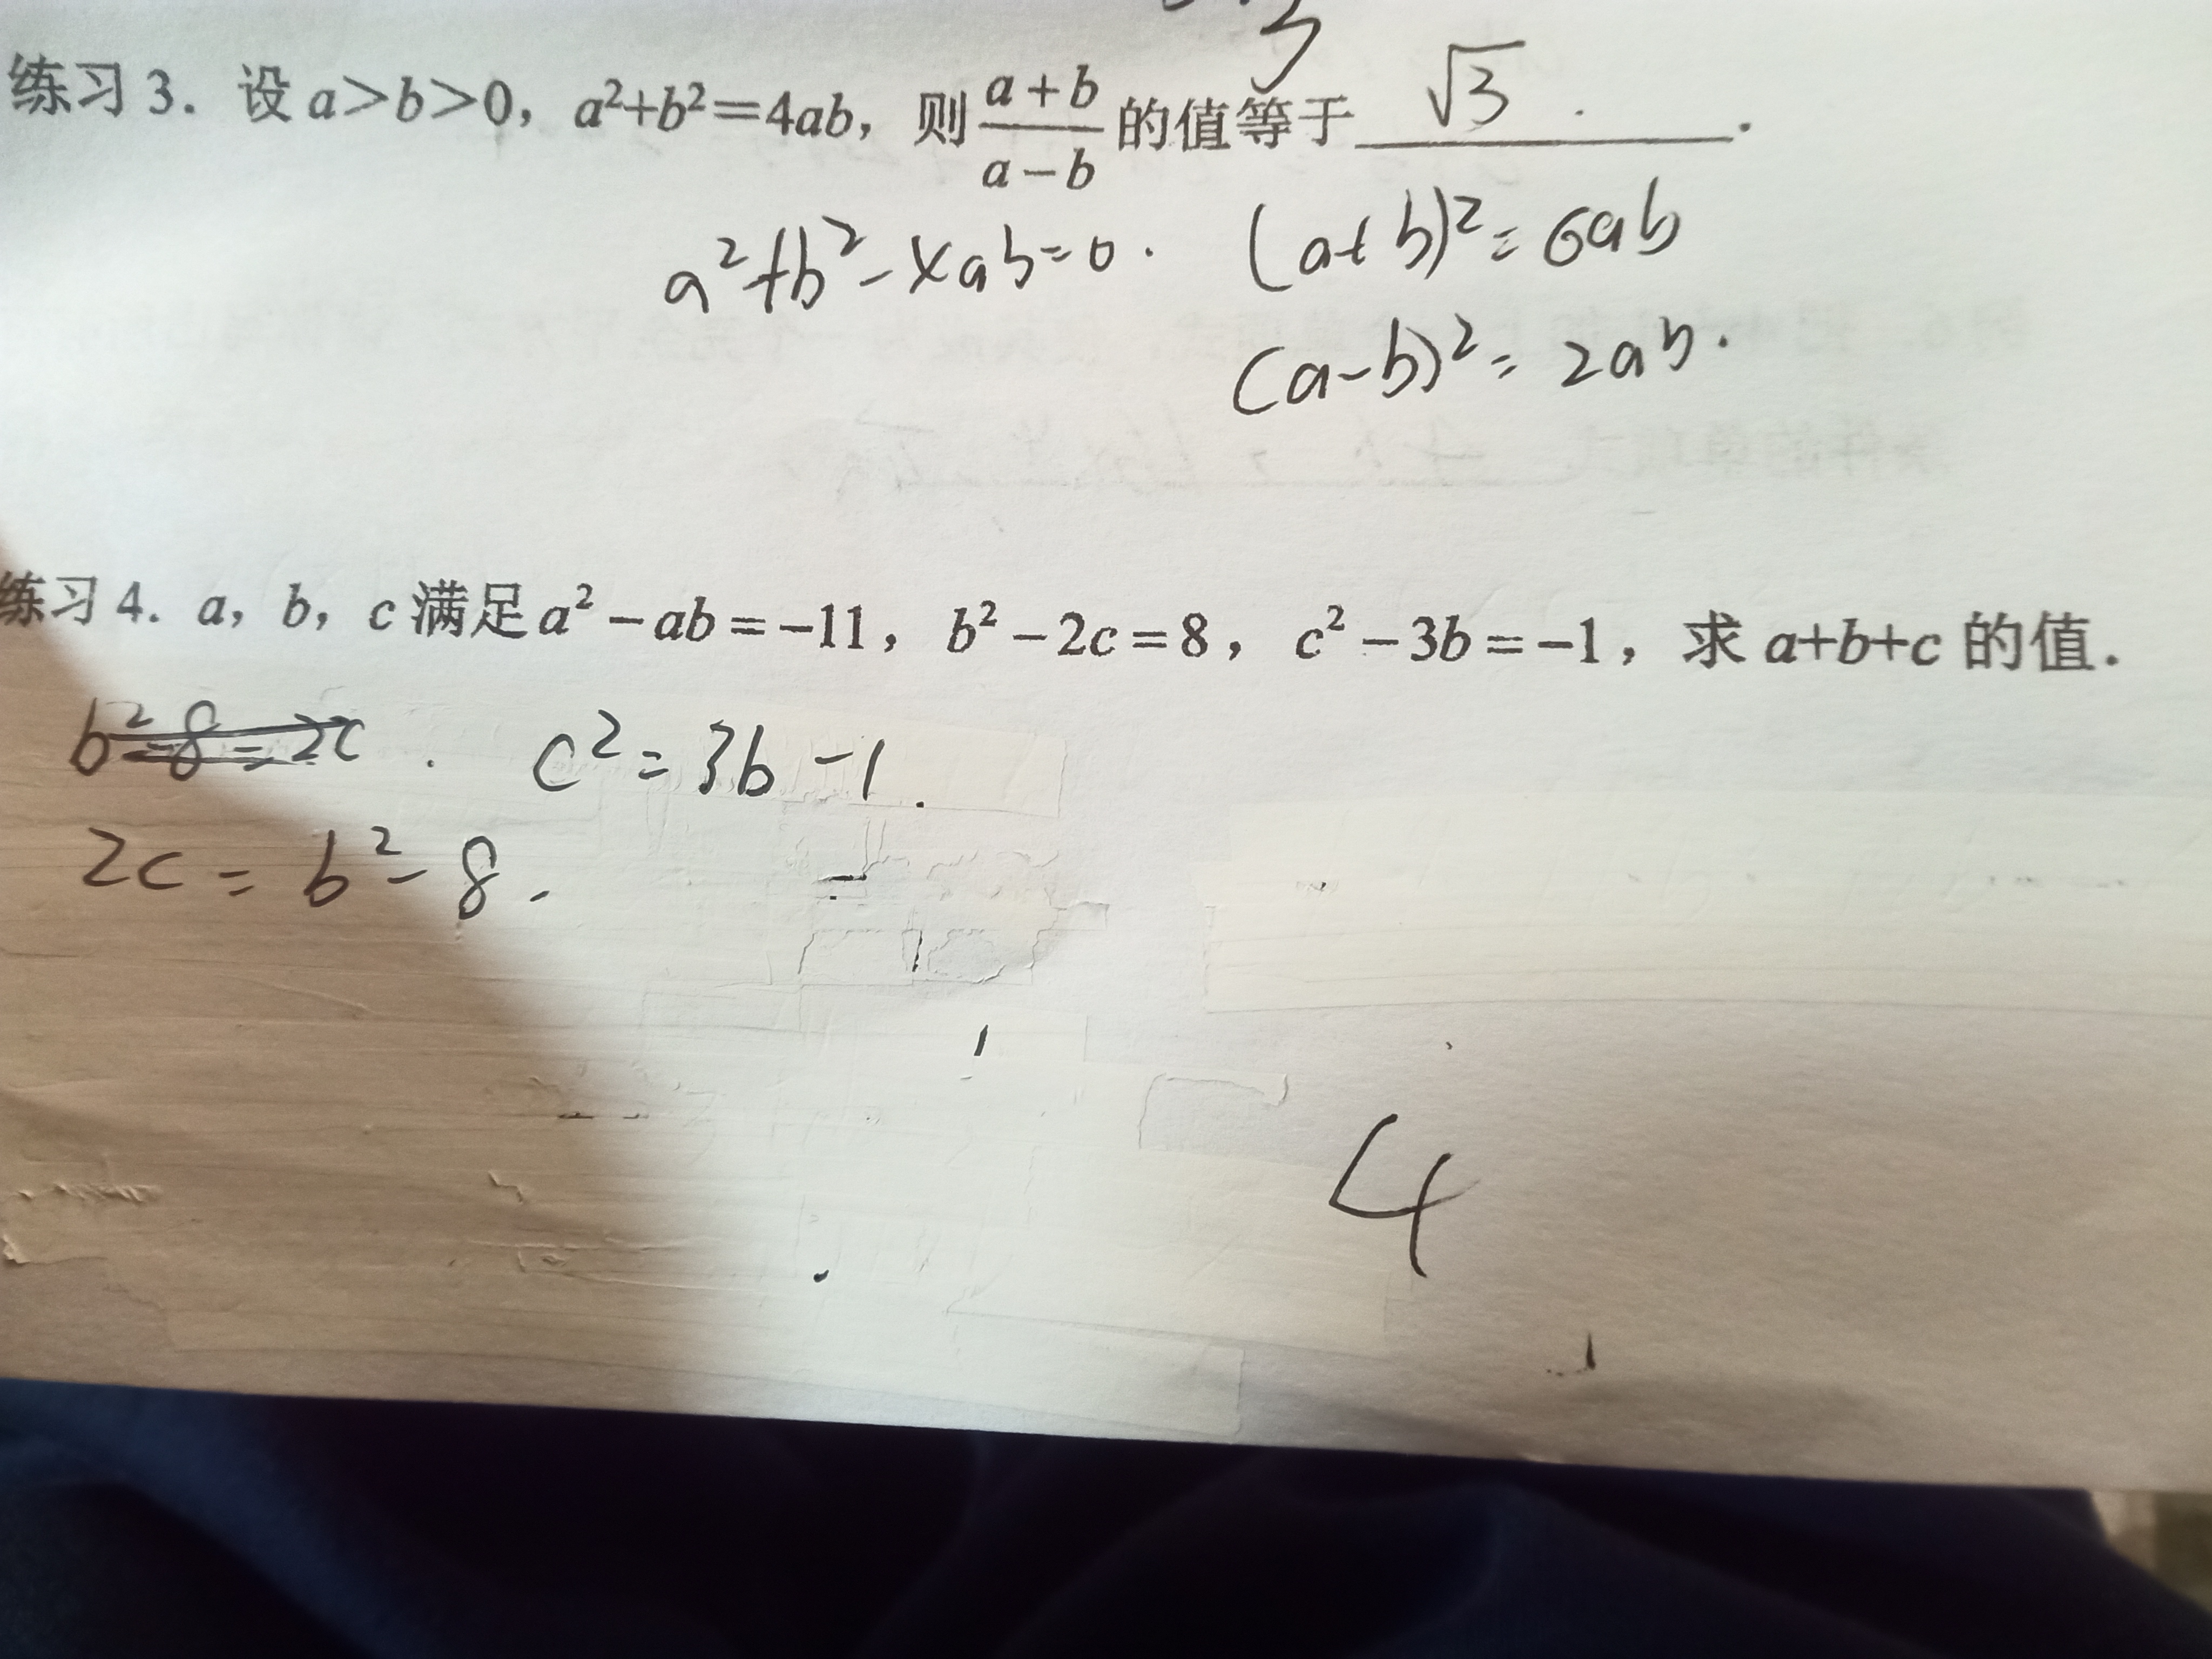 练习3. 设 a>b>0, a²+b²=4ab, 则 (a+b)/(a−b) 的值等于 √3 .
a²+b²-4ab=0. (a+b)²=6ab
(a-b)²=2ab.
练习4. a, b, c 满足 a²−ab=−11, b²−2c=8, c²−3b=−1, 求 a+b+c 的值.
b²-8=2c . c²=3b-1.
2c=b²-8.
4